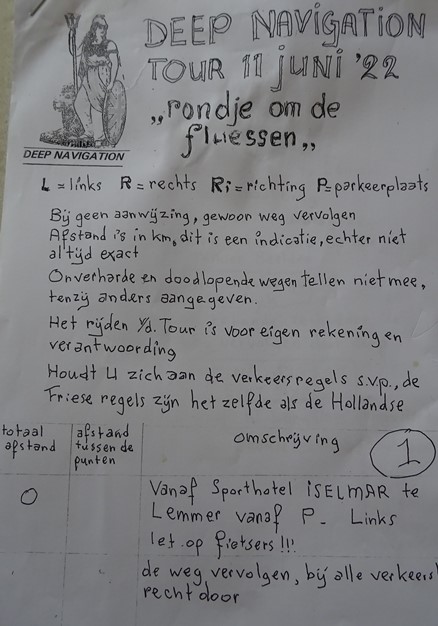 DEEP NAVIGATION
TOUR 11 juni '22
„rondje om de
fluessen„
DEEP NAVIGATION
L = links R = rechts Ri = richting P = parkeerplaats
Bij geen aanwijzing, gewoon weg vervolgen
Afstand is in km, dit is een indicatie, echter niet
altijd exact
Onverharde en doodlopende wegen tellen niet mee,
tenzij anders aangegeven.
Het rijden v/d. Tour is voor eigen rekening en
verantwoording
Houdt U zich aan de verkeersregels s.v.p., de
Friese regels zijn het zelfde als de Hollandse
totaal
afstand
afstand
tussen de
punten
omschrijving
1
0
Vanaf Sporthotel ISELMAR te
Lemmer vanaf P. Links
let op fietsers!!!
de weg vervolgen, bij alle verkeers
rechtdoor